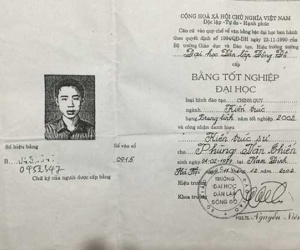 CỘNG HOÀ XÃ HỘI CHỦ NGHĨA VIỆT NAM
Độc lập - Tự do - Hạnh phúc
Căn cứ vào quy chế về văn bằng bậc đại học ban hành
theo quyết định số 1994/QĐ-ĐH ngày 22-11-1990 của
Bộ trưởng Giáo dục và Đào tạo, Hiệu trưởng trường
Đại học Dân lập Đông Đô
cấp
BẰNG TỐT NGHIỆP
ĐẠI HỌC
loại hình đào tạo CHÍNH QUY
ngành Kiến trúc
hạng Trung bình năm tốt nghiệp 2002
và công nhận danh hiệu
Kiến trúc sư
cho Phùng Văn Chiến
sinh ngày 1977 tại Nam Định
Hà Nội, ngày tháng 12 năm 2002
Hiệu trưởng
Khoa trưởng
TRƯỜNG
ĐẠI HỌC
DÂN LẬP
ĐÔNG ĐÔ
Nguyễn
Số hiệu bằng
Số vào sổ
B
0915
0452347
Chữ ký của người được cấp bằng